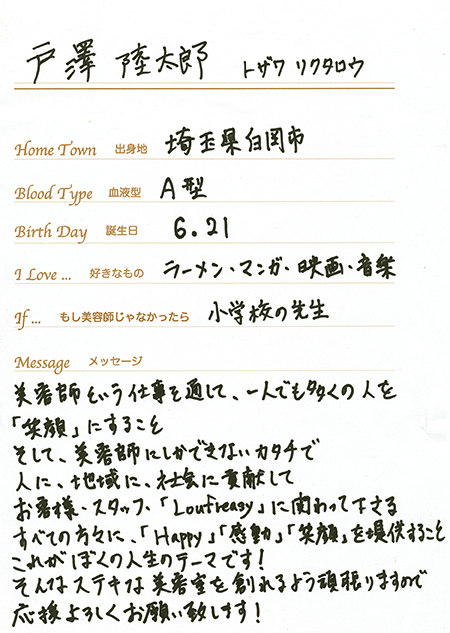 戸澤 陸太郎 トザワ リクタロウ
Home Town 出身地 埼玉県白岡市
Blood Type 血液型 A型
Birth Day 誕生日 6.21
I Love ... 好きなもの ラーメン・マンガ・映画・音楽
If ... もし美容師じゃなかったら 小学校の先生
Message メッセージ
美容師という仕事を通して、一人でも多くの人を
「笑顔」にすること
そして、美容師にしかできないカタチで
人に、地域に、社会に貢献して
お客様・スタッフ・「Loufreasy」に関わって下さる
すべての方々に、「Happy」「感動」「笑顔」を提供すること
これがぼくの人生のテーマです!
そんなステキな美容室を創れるよう頑張りますので
応援よろしくお願い致します!